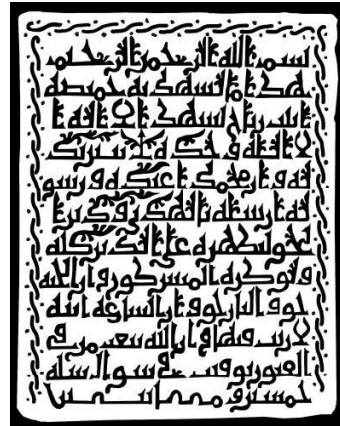 بسم الله الرحمن الرحيم
هذا ما تشهد به
ابنت تشهد الا اله ا
لا الله وحده لا شريك
له وان محمدا عبده ورسو
له ارسله بالهدى ودين ا
لحق ليظهره على الدين كله
ولو كره المشركون وان الجنة
حق والنار حق وان الساعة اتية
لا ريب فيها وان الله يبعث من في
القبور توفيت في شوال سنة
خمسين و مائتين